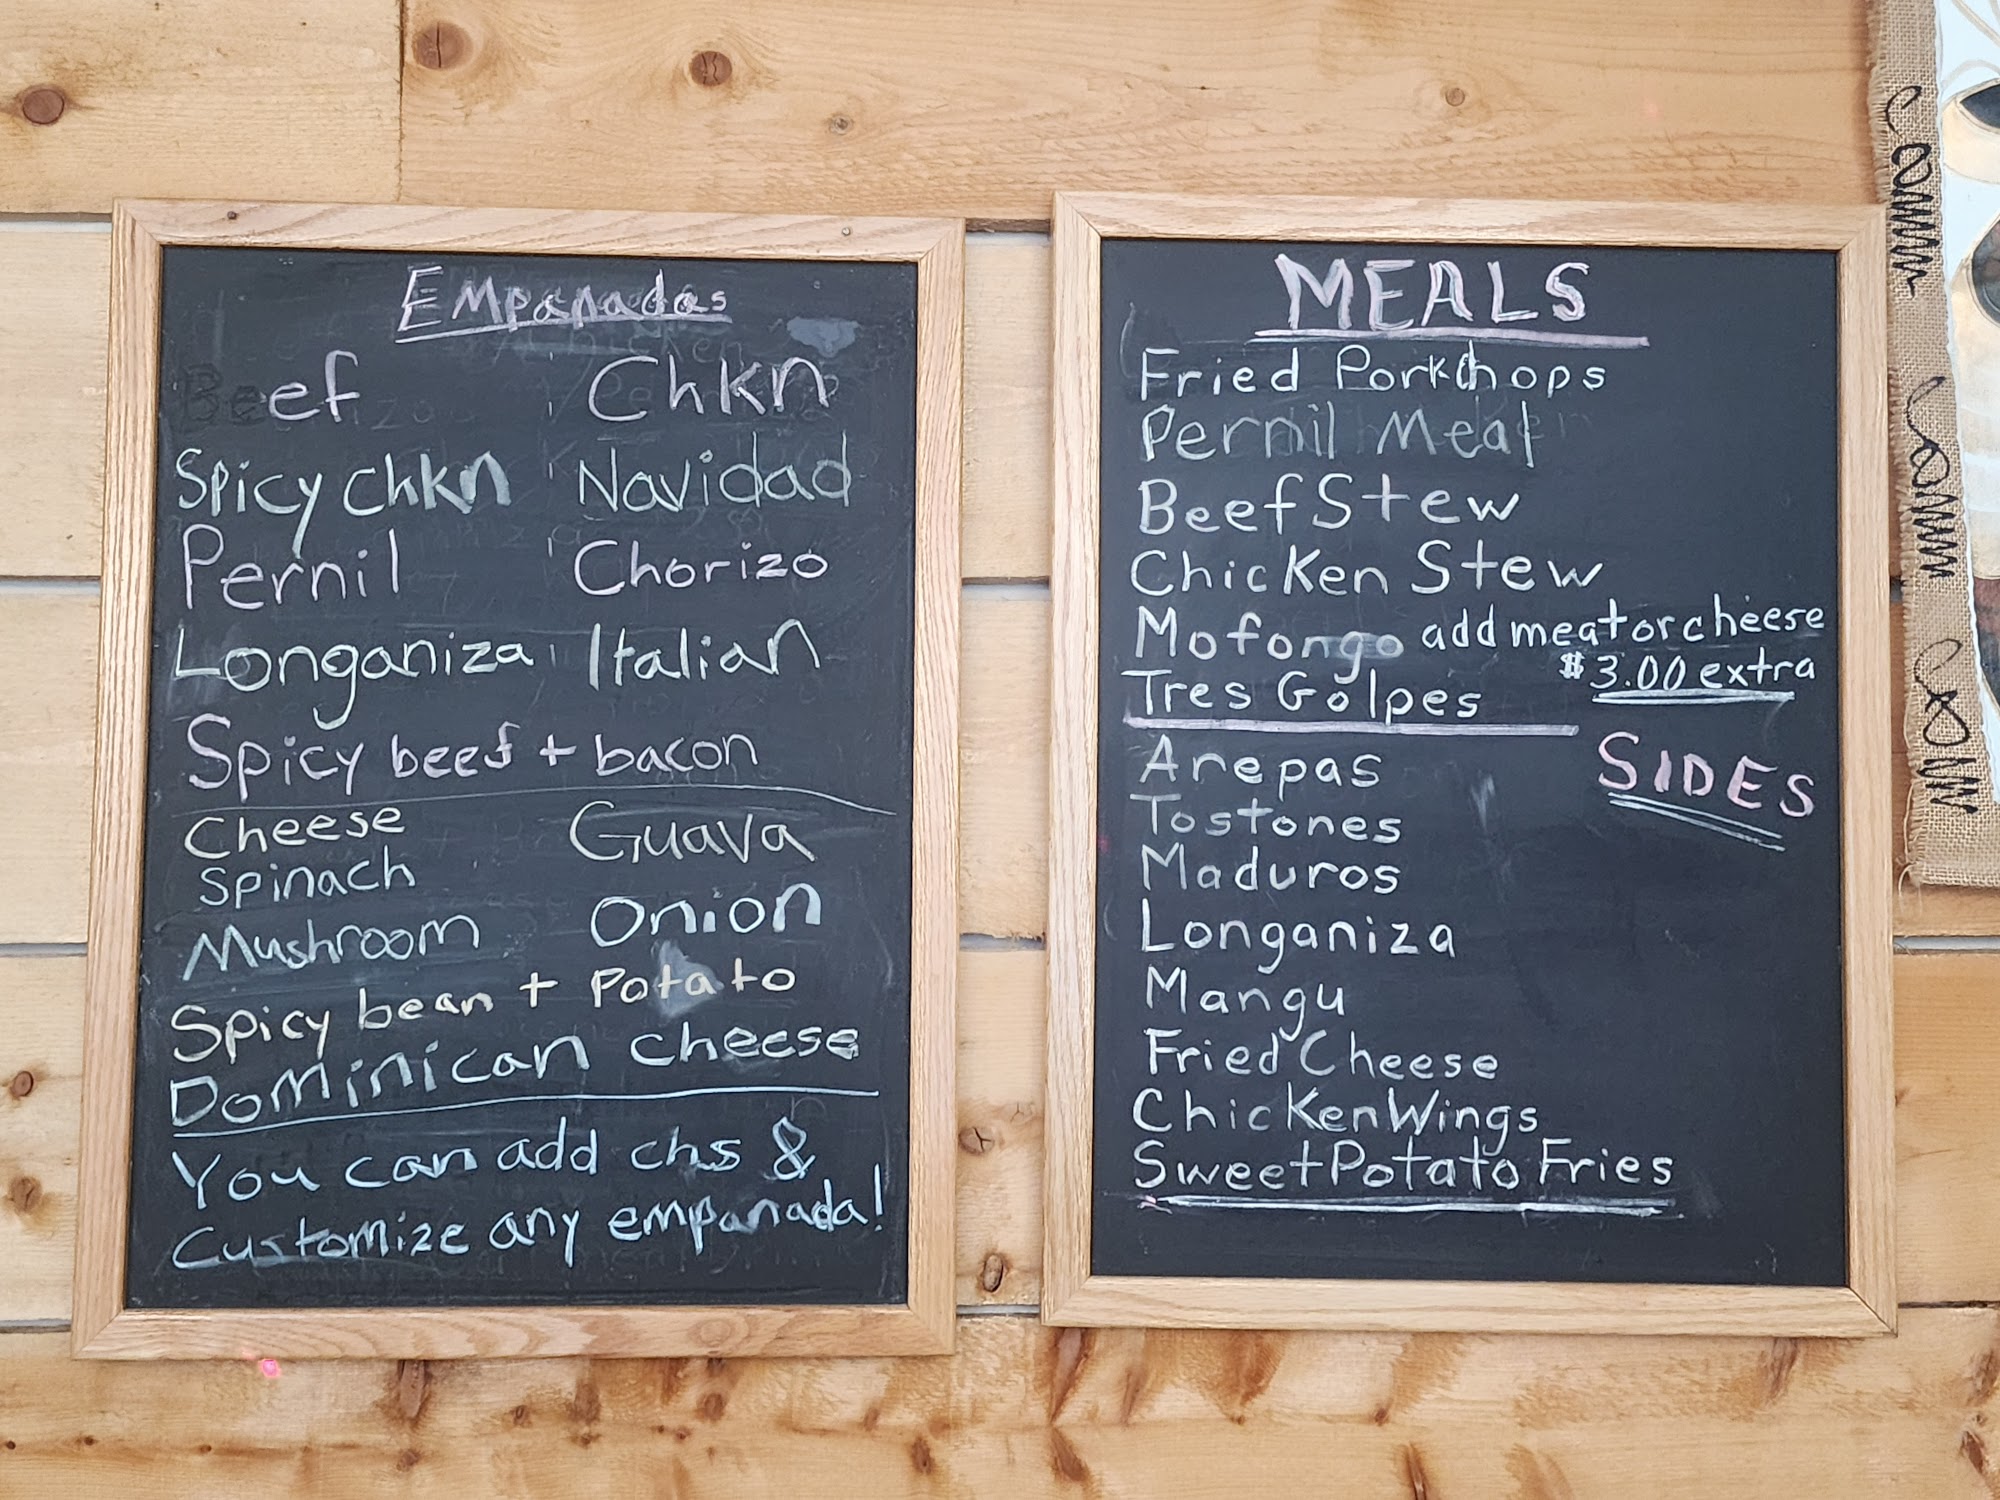 Empanadas
Beef Chkn
Spicy chkn Navidad
Pernil Chorizo
Longaniza Italian
Spicy beef + bacon
Cheese Guava
Spinach
Mushroom Onion
Spicy bean + Potato
Dominican cheese
You can add chs &
Customize any empanada!
MEALS
Fried Porkchops
Pernil Meal
Beef Stew
Chicken Stew
Mofongo add meat or cheese
$3.00 extra
Tres Golpes
SIDES
Arepas
Tostones
Maduros
Longaniza
Mangu
Fried Cheese
Chicken Wings
Sweet Potato Fries